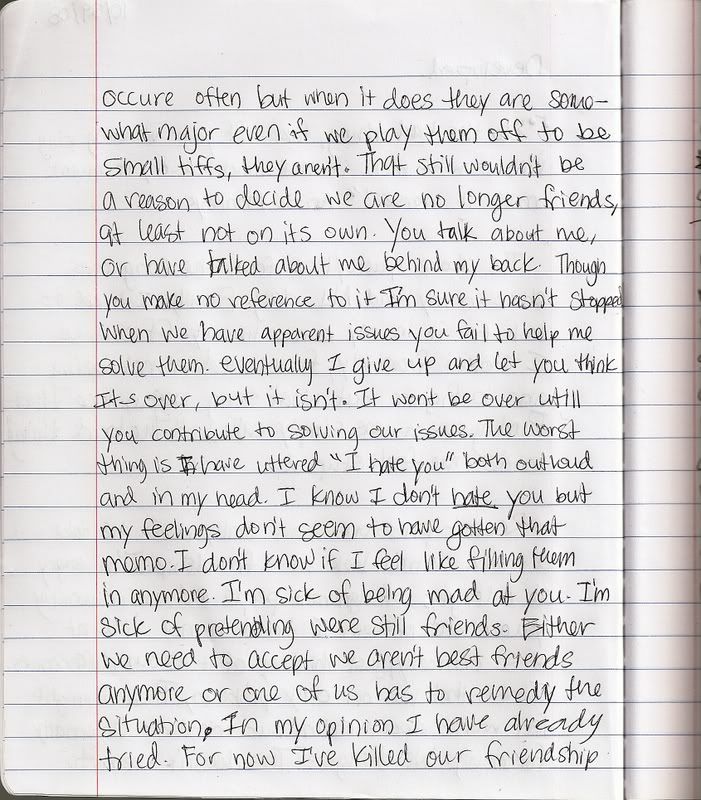 occure often but when it does they are some-
what major even if we play them off to be
small tiffs, they aren't. That still wouldn't be
a reason to decide we are no longer friends,
at least not on its own. You talk about me,
or have talked about me behind my back. Though
you make no reference to it I'm sure it hasn't stopped
When we have apparent issues you fail to help me
solve them. eventually I give up and let you think
Its over, but it isn't. It wont be over utill
you contribute to solving our issues. The worst
thing is I have uttered "I hate you" both outloud
and in my head. I know I don't hate you but
my feelings don't seem to have gotten that
memo. I don't know if I feel like filling them
in anymore. I'm sick of being mad at you. I'm
sick of pretending were still friends. Either
we need to accept we aren't best friends
anymore or one of us has to remedy the
situation. In my opinion I have already
tried. For now I've killed our friendship